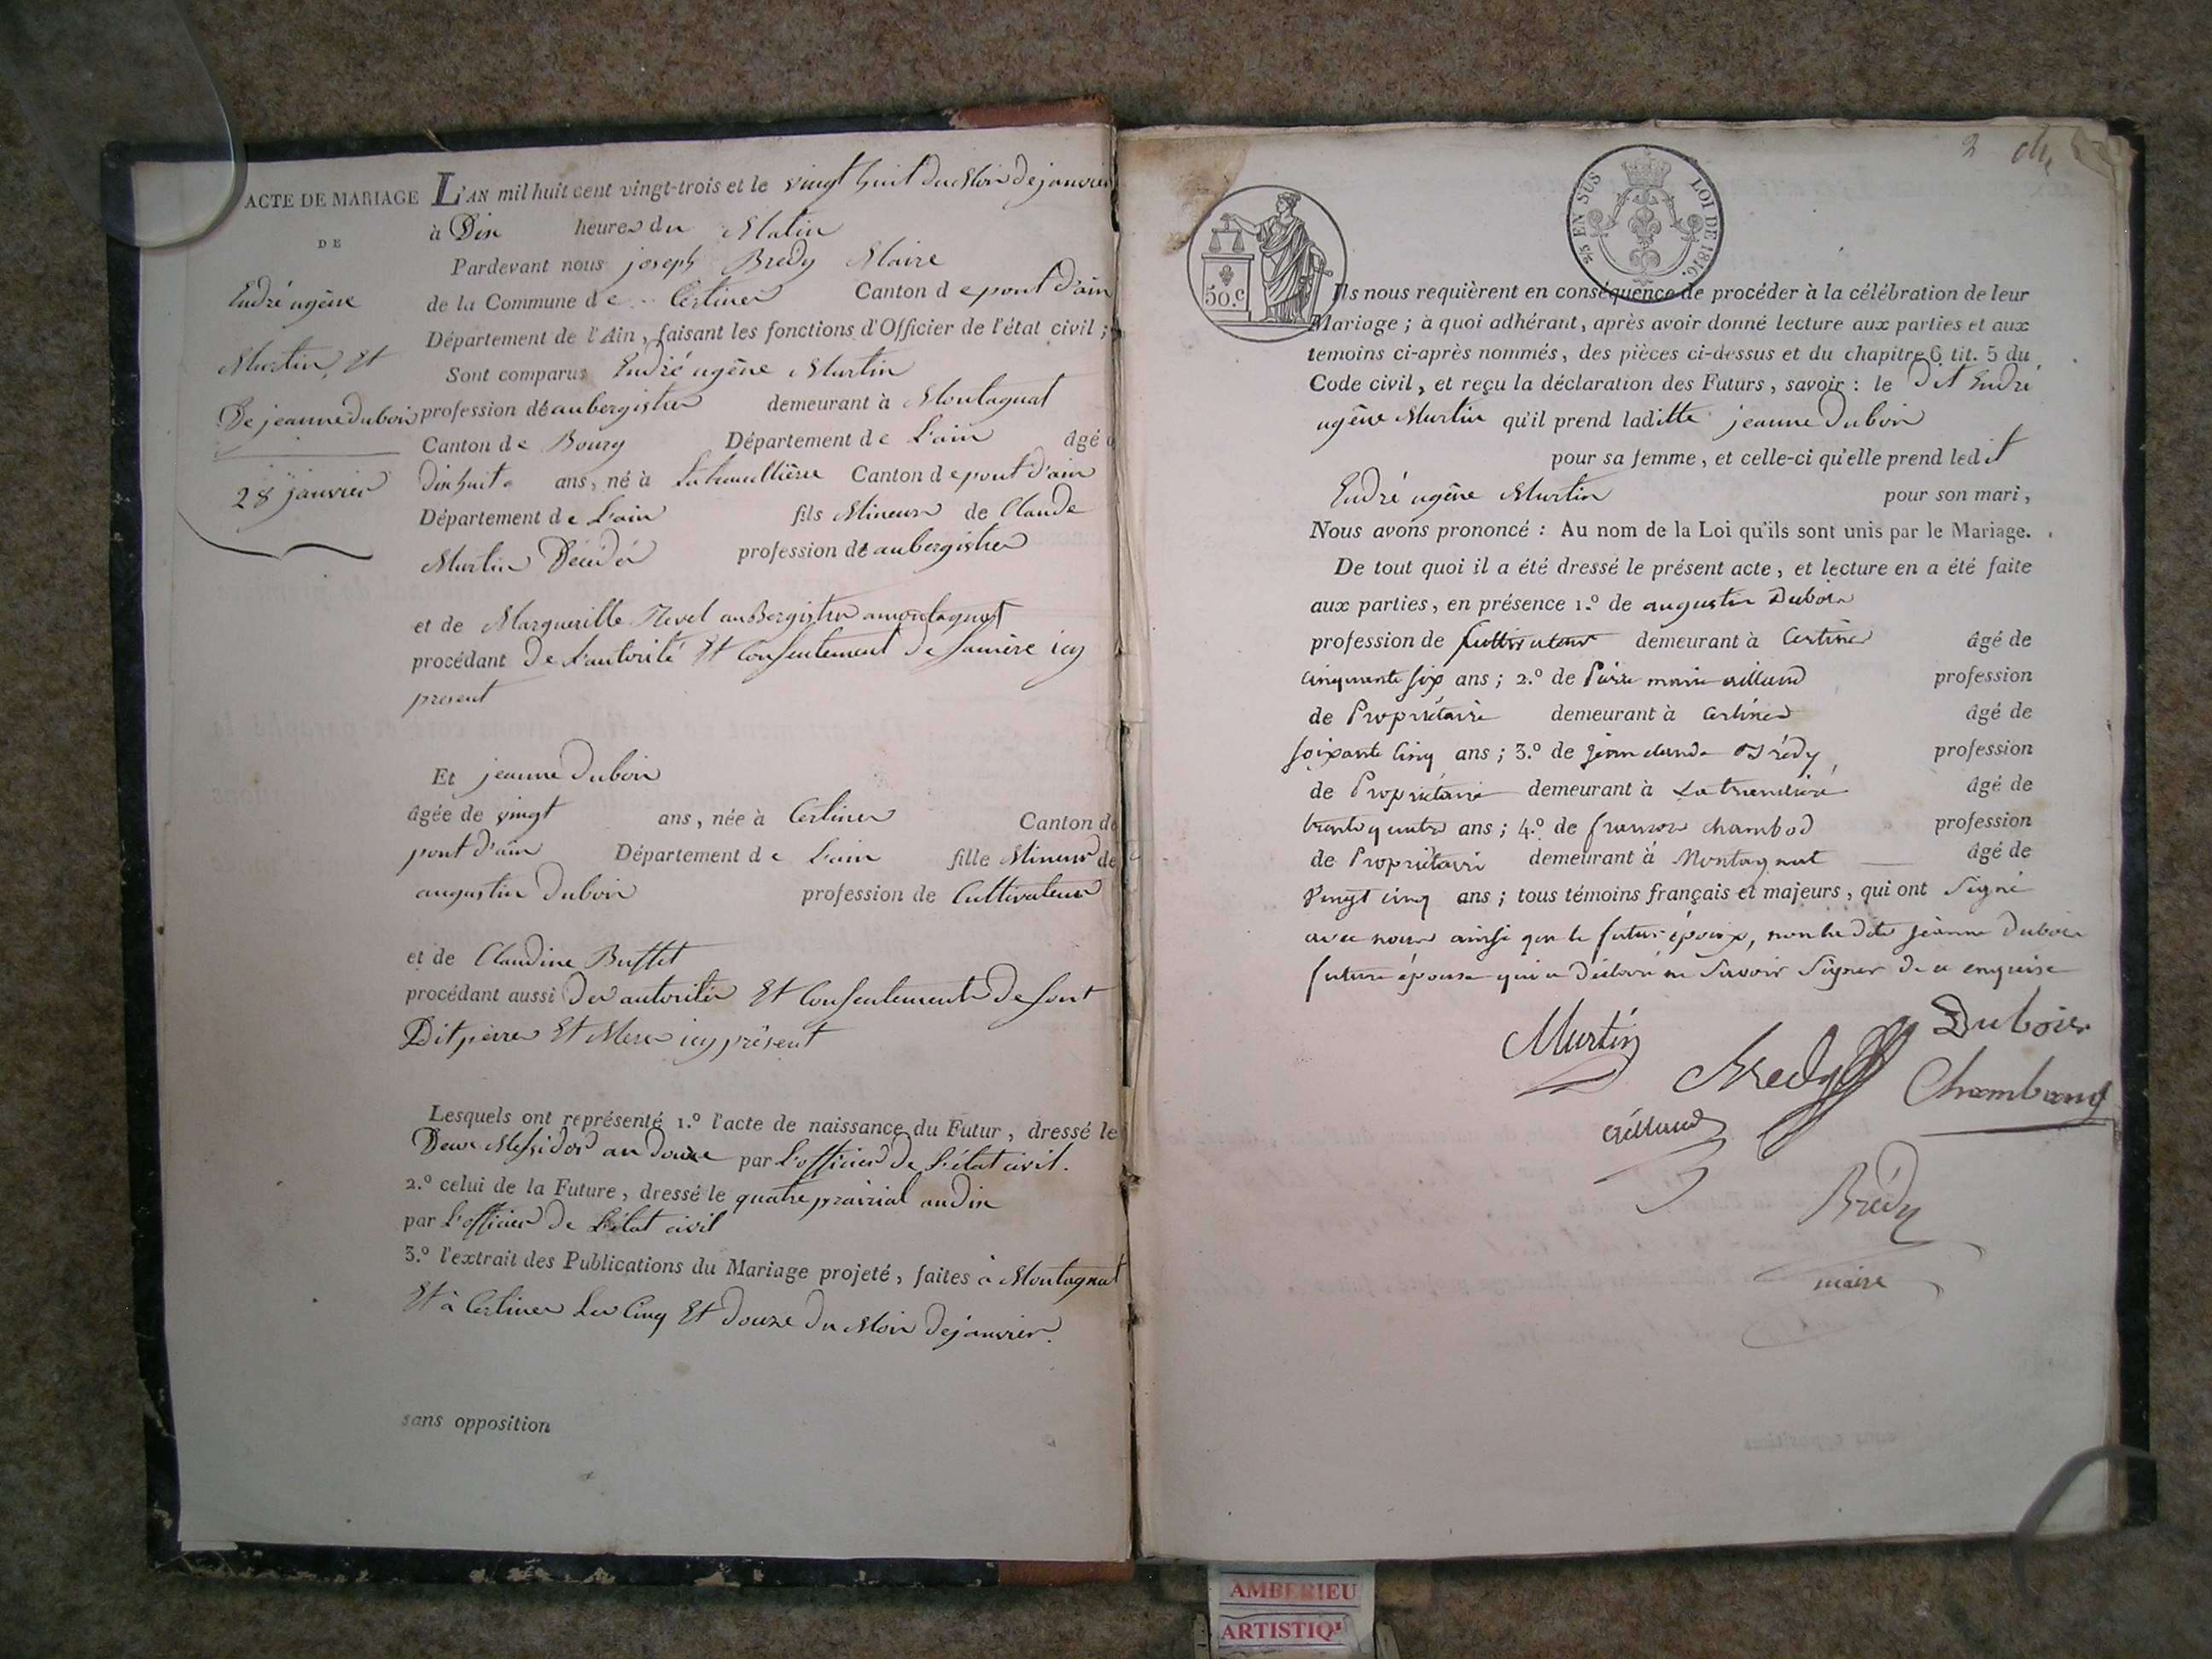 ACTE DE MARIAGE
DE
Endré ugène
Martin, Et
De jeanne dubois
28 janvier
L'AN mil huit cent vingt-trois et le vingt huit du Mois de janvier
à Dix heures du Matin
Pardevant nous joseph Bredy Maire
de la Commune de Certines Canton de pont d'ain
Département de l'Ain, faisant les fonctions d'Officier de l'état civil;
Sont comparus Endré ugène Martin
profession de aubergistes demeurant à Montagnat
Canton de Bourg Département de L'ain âgé
dix huit ans, né à Canton de pont d'ain
Département de L'ain fils Mineur de Claude
Martin Décédé profession de aubergistes
et de Margueritte aubergistes a montagnat
procédant De L'autorité Et Consentement De samère icy
present
Et jeanne dubois
âgée de vingt ans, née à Certines Canton de
pont d'ain Département de L'ain fille Mineur de
augustin dubois profession de Cultivateur
et de Claudine Buffet
procédant aussi Des autorités Et Consentements De sont
Dit pierre Et Mere icy présent
Lesquels ont représenté 1.º l'acte de naissance du Futur, dressé le
Deux Messidor an douze par L'officier De L'état civil.
2.º celui de la Future, dressé le quatre prairial an dix
par L'officier De L'état civil
3.º l'extrait des Publications du Mariage projeté, faites à Montagnat
Et à Certines Les Cinq Et douze du Mois De janvier.
sans opposition
2
50.c
EN SUS LOI DE 1816.
Ils nous requièrent en conséquence de procéder à la célébration de leur
Mariage; à quoi adhérant, après avoir donné lecture aux parties et aux
temoins ci-après nommés, des pièces ci-dessus et du chapitre 6 tit. 5 du
Code civil, et reçu la déclaration des Futurs, savoir: le Dit Endré
ugène Martin qu'il prend laditte jeanne dubois
pour sa femme, et celle-ci qu'elle prend ledit
Endré ugène Martin pour son mari,
Nous avons prononcé: Au nom de la Loi qu'ils sont unis par le Mariage.
De tout quoi il a été dressé le présent acte, et lecture en a été faite
aux parties, en présence 1.º de augustin Dubois
profession de Cultivateur demeurant à Certines âgé de
cinquante six ans; 2.º de Pierre marie profession
de Propriétaire demeurant à Certines âgé de
soixante cinq ans; 3.º de jean claude Brédy, profession
de Propriétaire demeurant à âgé de
trente quatre ans; 4.º de françois chambod profession
de Propriétaire demeurant à Montagnat âgé de
Vingt cinq ans; tous témoins français et majeurs, qui ont Signé
avec nous ainsi que le futur époux, non la dite jeanne Dubois
future épouse qui a Déclaré ne Savoir Signer de ce enquise
Martin Dubois
Bredy Chambaud
Brédy
maire
AMBERIEU
ARTISTIQ